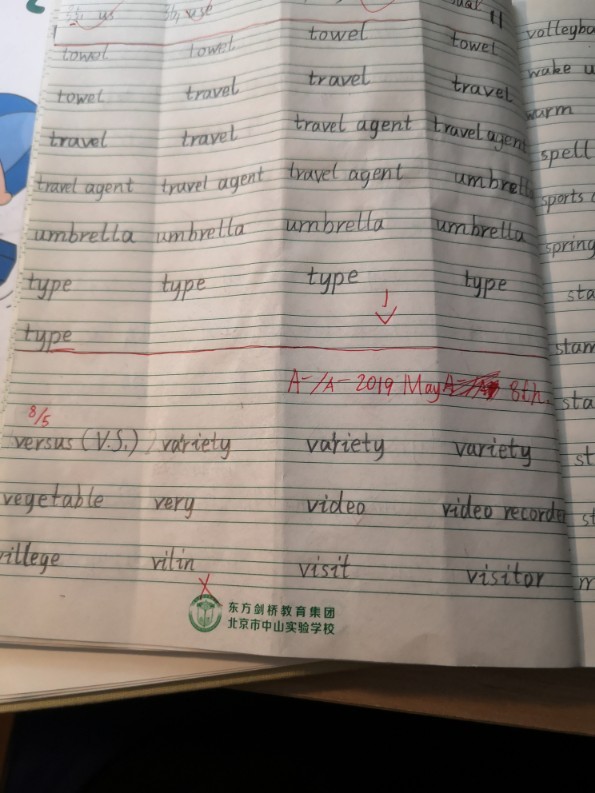 us use
towel towel towel towel
towel travel travel travel
travel travel travel agent travel agent
travel agent travel agent travel agent umbrella
umbrella umbrella umbrella umbrella
type type type type
type
A-/A- 2019 May 8th.
8/5
versus (V.S.) variety variety variety
vegetable very video video recorder
villege vilin visit visitor
东方剑桥教育集团
北京市中山实验学校
wake u
warm
spell
sports
spring
sta
stam
sta
st
st